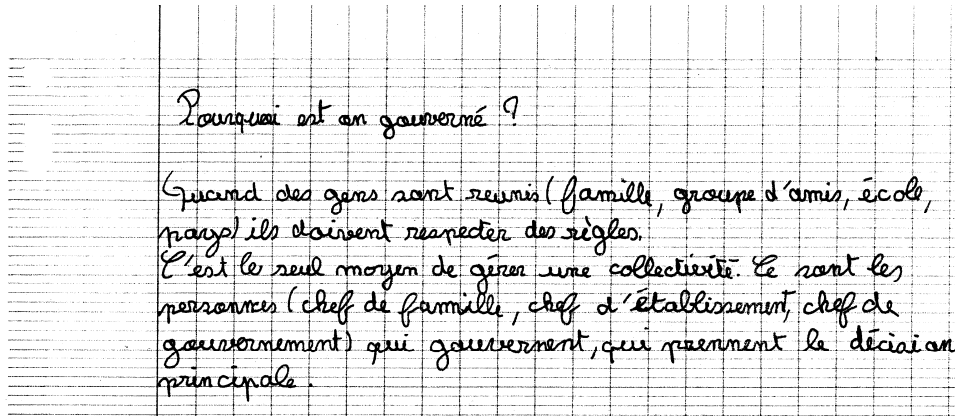 Pourquoi est on gouverné ?
Quand des gens sont reunis (famille, groupe d'amis, école,
pays) ils doivent respecter des règles.
C'est le seul moyen de gérer une collectivité. Ce sont les
personnes (chef de famille, chef d'établissement, chef de
gouvernement) qui gouvernent, qui prennent la décision
principale.